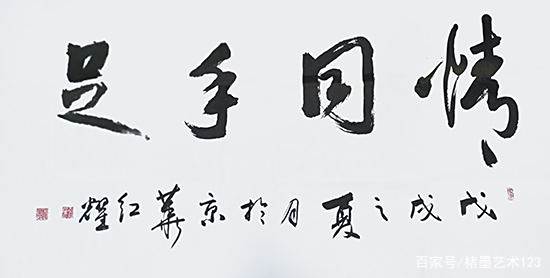 情同手足
戊戌之夏月於京華红耀
百家号/楮墨艺术123